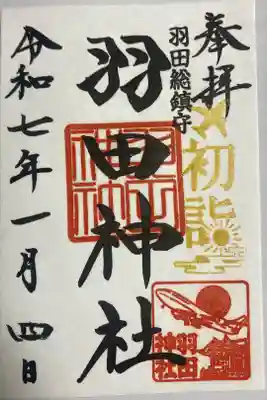 奉拝
初詣
羽田総鎮守
羽田神社
羽田神社
羽田
神社
令和七年一月四日